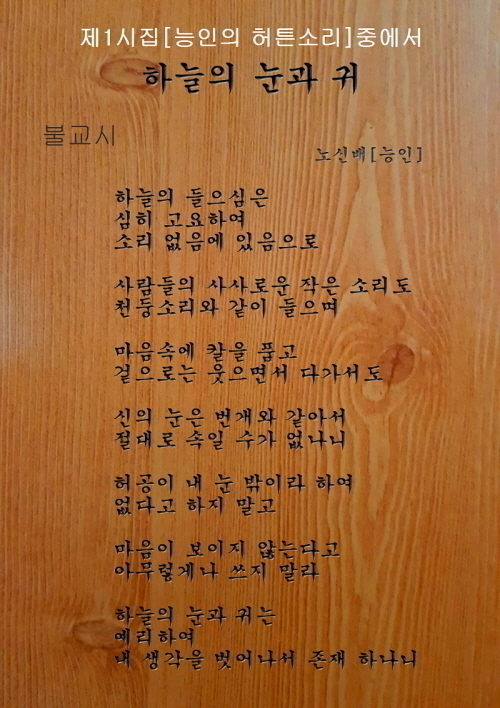 제1시집[능인의 허튼소리]중에서
하늘의 눈과 귀
불교시
노신배[능인]
하늘의 들으심은
심히 고요하여
소리 없음에 있음으로
사람들의 사사로운 작은 소리도
천둥소리와 같이 들으며
마음속에 칼을 품고
겉으로는 웃으면서 다가서도
신의 눈은 번개와 같아서
절대로 속일 수가 없나니
허공이 내 눈 밖이라 하여
없다고 하지 말고
마음이 보이지 않는다고
아무렇게나 쓰지 말라
하늘의 눈과 귀는
예리하여
내 생각을 벗어나서 존재 하나니